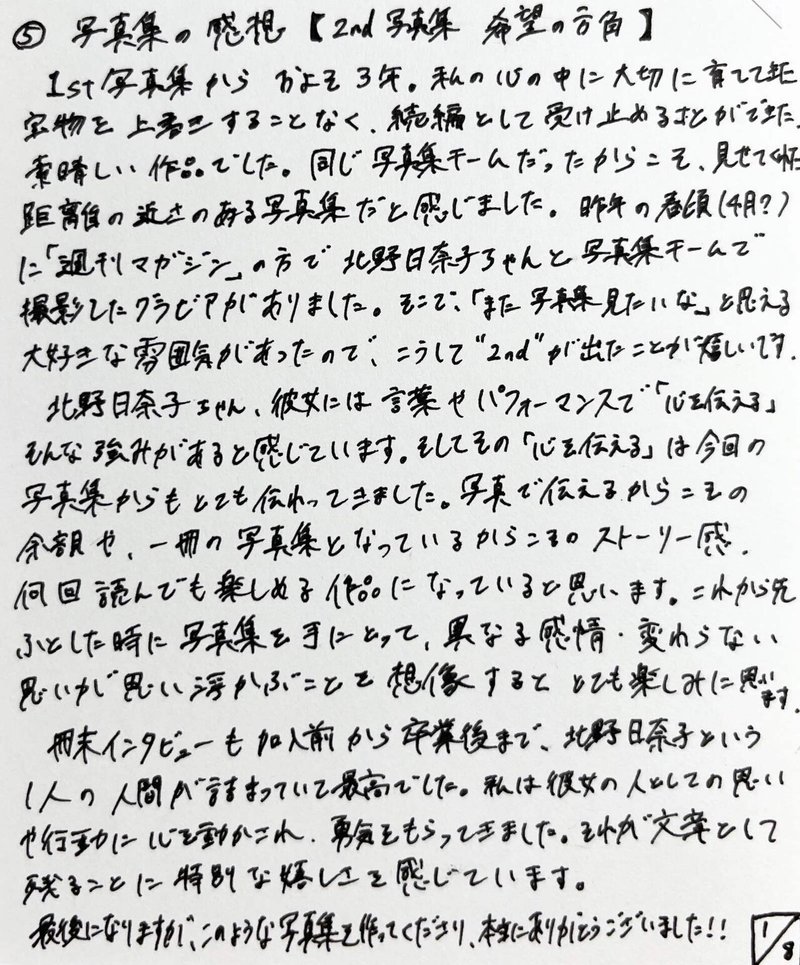 ⑤ 写真集の感想【2nd写真集 希望の方角】
1st写真集から およそ3年。私の心の中に大切に育ててきた
宝物を上書きすることなく、続編として受け止めることができた、
素晴しい作品でした。同じ写真集チームだったからこそ、見せてくれた
距離の近さのある写真集だと感じました。昨年の春頃(4月?)
に「週刊マガジン」の方で北野日奈子ちゃんと写真集チームで
撮影したグラビアがありました。そこで、「また写真集見たいな」と思える
大好きな雰囲気があったので、こうして"2nd"が出たことが嬉しいです。
北野日奈子ちゃん、彼女には言葉やパフォーマンスで「心を伝える」
そんな強みがあると感じています。そしてその「心を伝える」は今回の
写真集からもとても伝わってきました。写真で伝えるからこその
余韻や、一冊の写真集となっているからこそのストーリー感。
何回読んでも楽しめる作品になっていると思います。これから先
ふとした時に写真集を手にとって、異なる感情・変わらない
思いが思い浮かぶことを想像するととても楽しみに思います。
冊末インタビューも加入前から卒業後まで、北野日奈子という
1人の人間が詰まっていて最高でした。私は彼女の人としての思い
や行動に心を動かされ、勇気をもらってきました。それが文章として
残ることに特別な嬉しさを感じています。
最後になりますが、このような写真集を作ってくださり、本当にありがとうございました!!
1/8